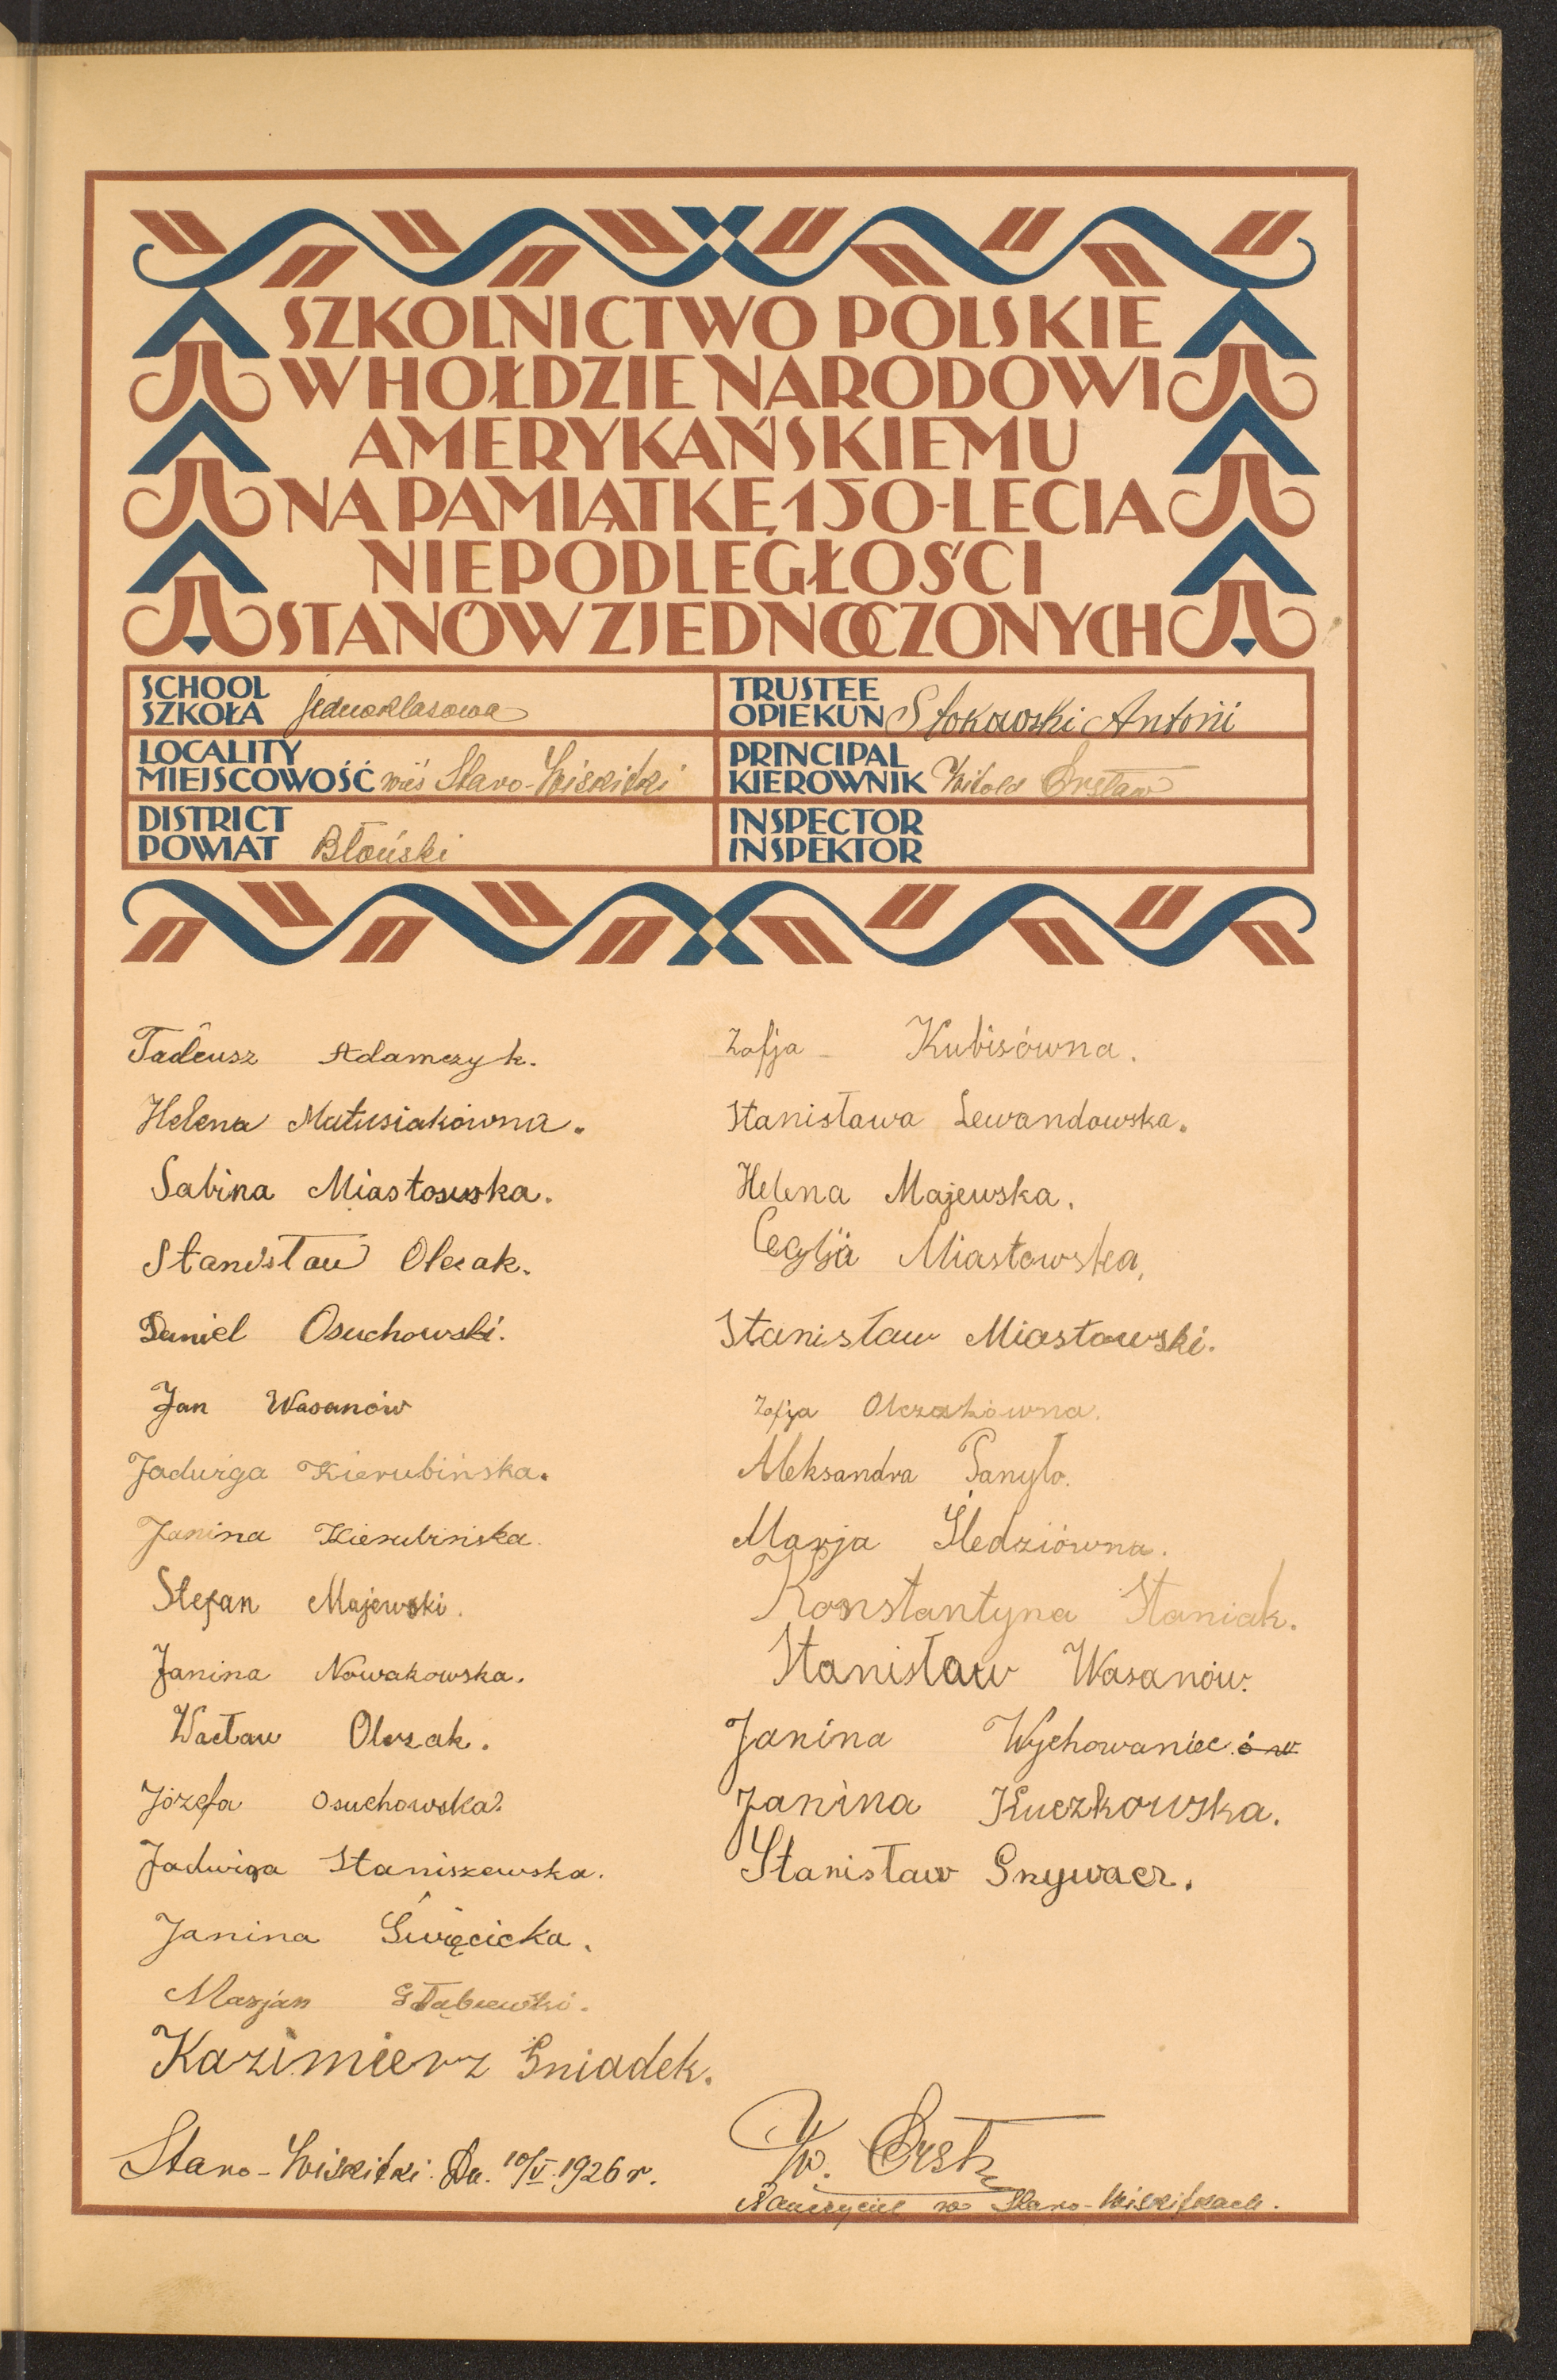 SZKOLNICTWO POLSKIE
W HOŁDZIE NARODOWI
AMERYKAŃSKIEMU
NA PAMIĄTKĘ 150-LECIA
NIEPODLEGŁOŚCI
STANÓW ZJEDNOCZONYCH
SCHOOL
SZKOŁA jednoklasowa
TRUSTEE
OPIEKUN Stokowski Antoni
LOCALITY
MIEJSCOWOŚĆ wieś Staro-Wiskitki
PRINCIPAL
KIEROWNIK Witold
DISTRICT
POWIAT Błoński
INSPECTOR
INSPEKTOR
Tadeusz Adamczyk.
Helena Matusiakówna.
Sabina Miastowska.
Stanisław Olczak.
Daniel Osuchowski.
Jan Wasanów
Jadwiga Kierubińska.
Janina Kierubińska.
Stefan Majewski.
Janina Nowakowska.
Wacław Olczak.
Józefa Osuchowska.
Jadwiga Staniszewska.
Janina Święcicka.
Marjan Głąbiewski.
Kazimierz Gniadek.
Staro-Wiskitki. Dn. 10/V. 1926 r.
Zofja Kubisówna.
Stanisława Lewandowska.
Helena Majewska.
Miastowska,
Stanisław Miastowski.
Zofja Olczakówna.
Aleksandra Panyło.
Marja Śledziówna.
Konstantyna Staniak.
Stanisław Wasanów.
Janina Wychowaniec ów
Janina Kuczkowska.
Stanisław
W.
Nauczyciel w Staro-Wiskitkach.